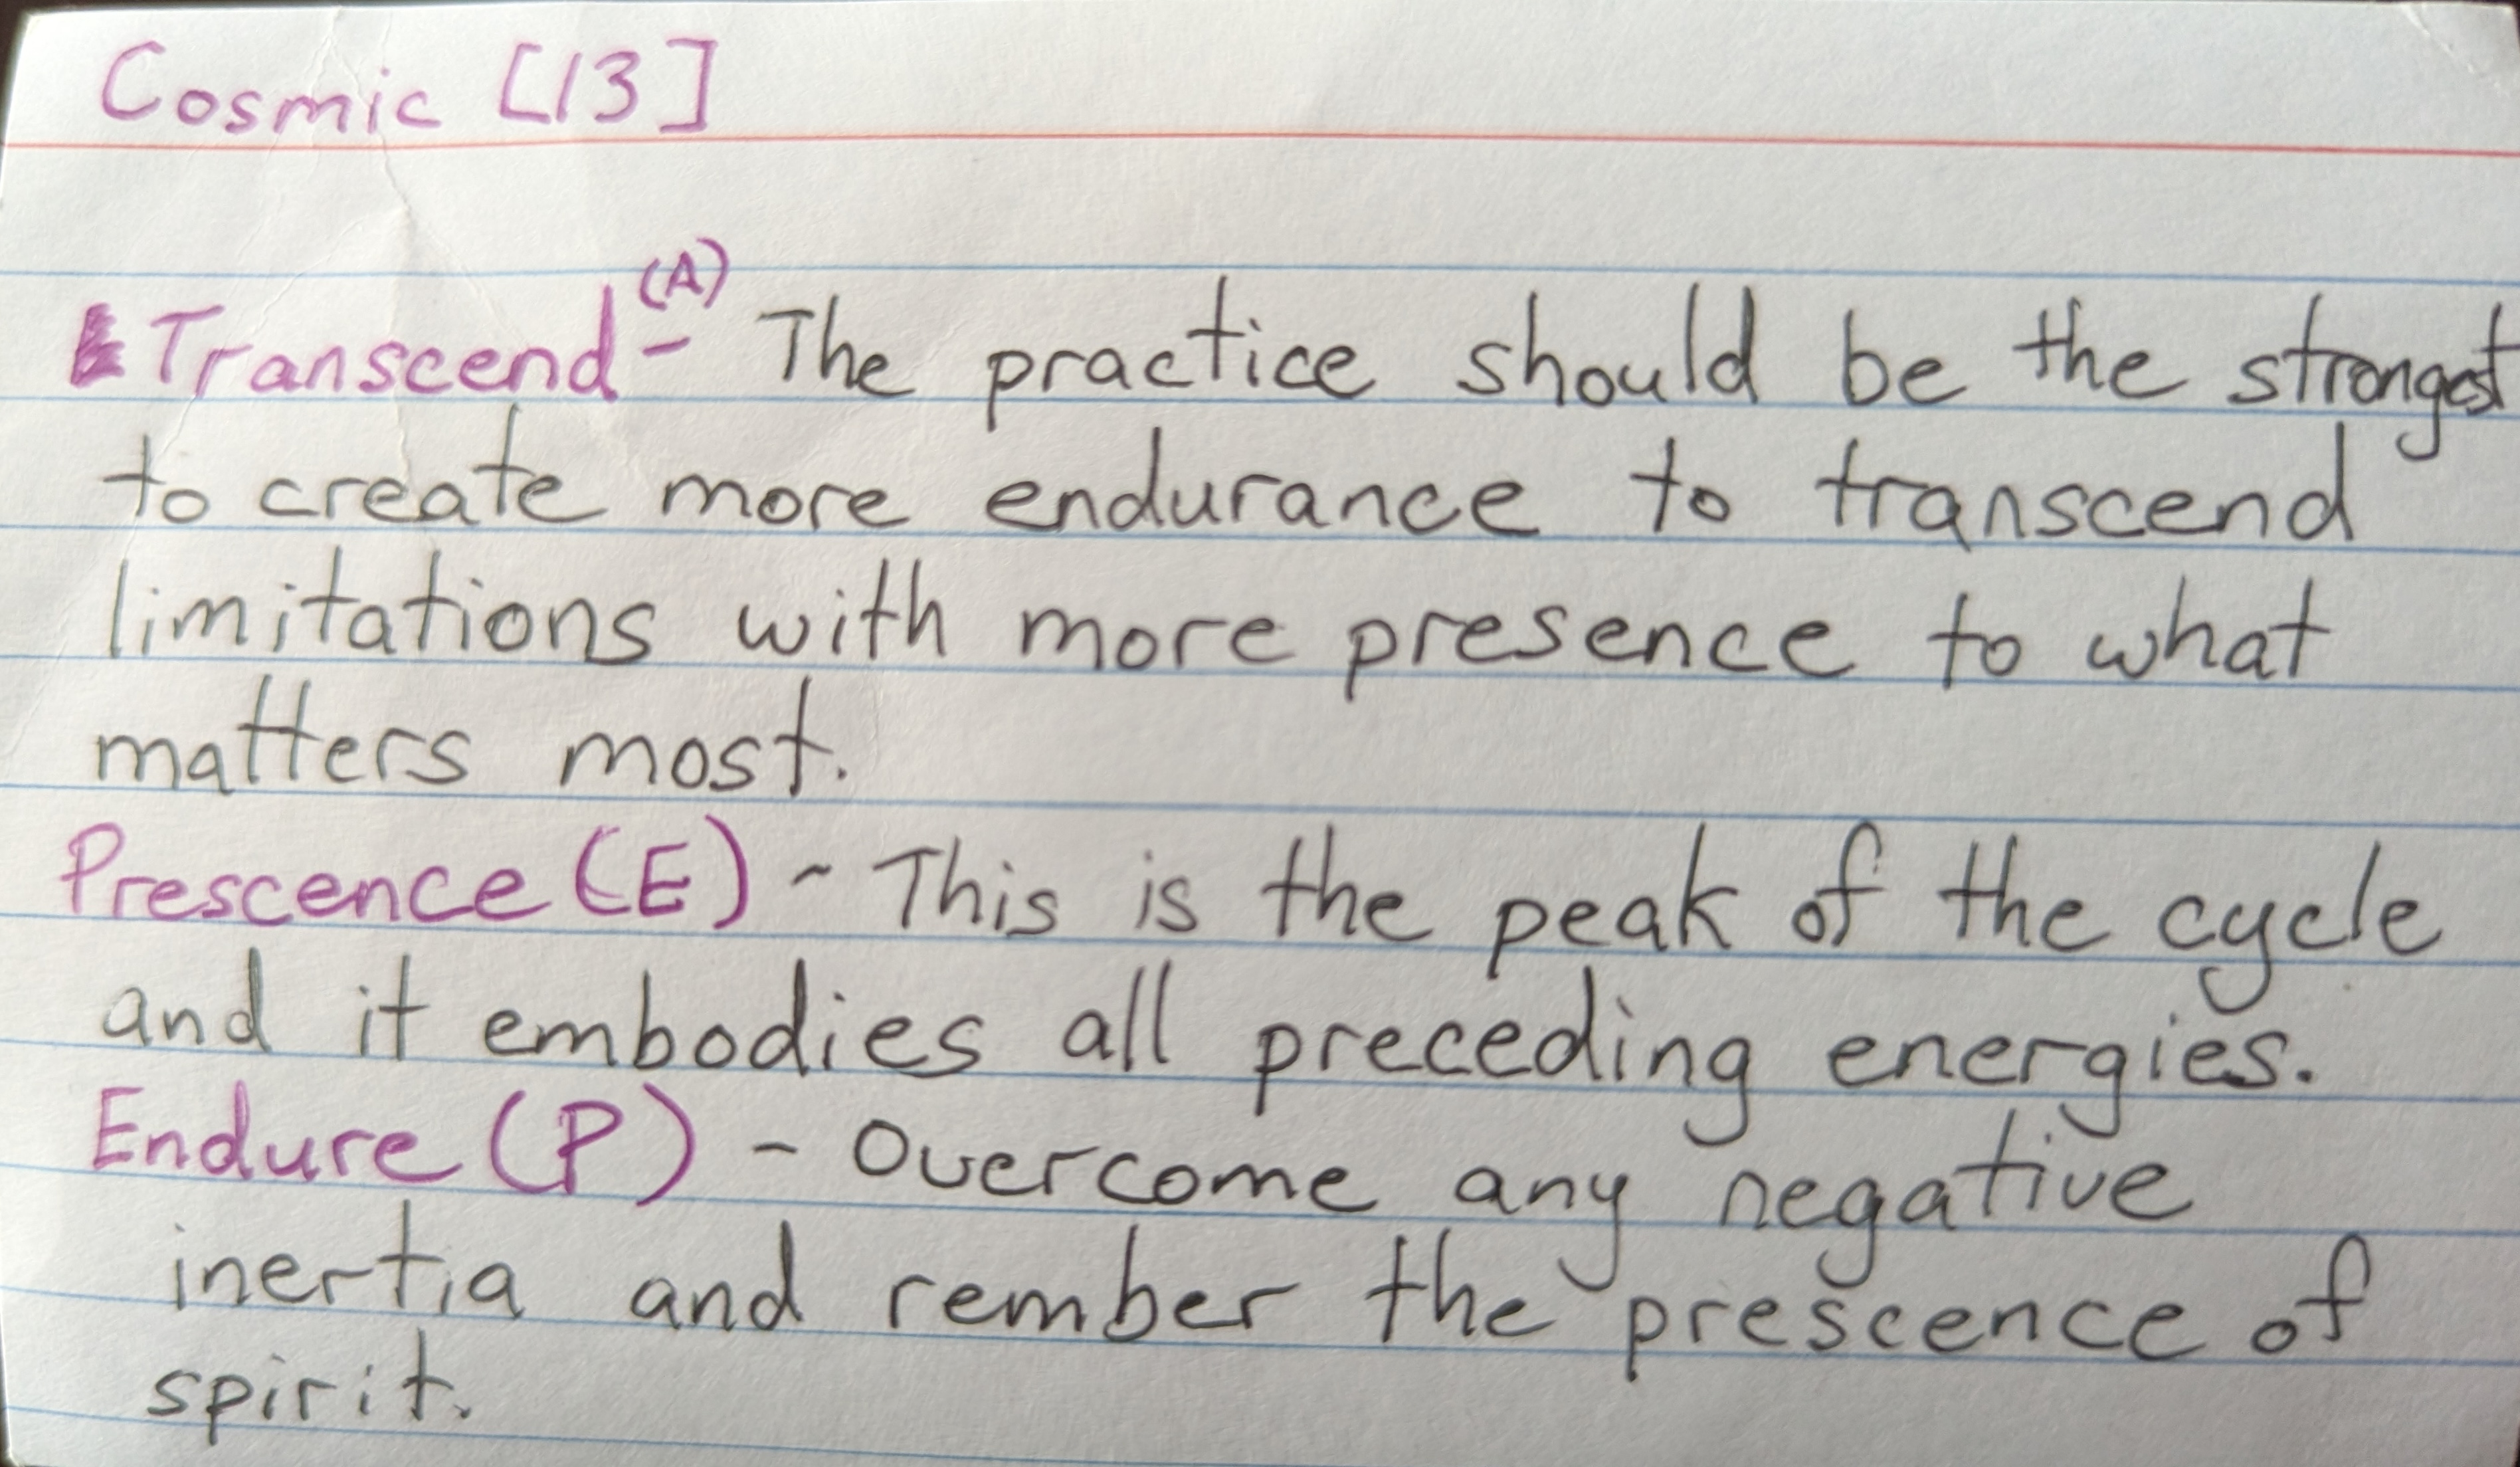 Cosmic [13]
Transcend (A) - The practice should be the strongest
to create more endurance to transcend
limitations with more presence to what
matters most.
Prescence (E) - This is the peak of the cycle
and it embodies all preceding energies.
Endure (P) - Overcome any negative
inertia and rember the prescence of
spirit.